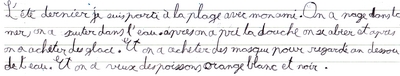 L'été dernier je suis partit à la plage avec mon ami. On a nagé dans la
mer, on a suter dans l'eau. apres on a prit la douche on se abiller et apres
on a acheter des glace. Et on a acheter des masque pour regarder an dessou
de l'eau. Et on a veux des poissons orange blanc et noir.